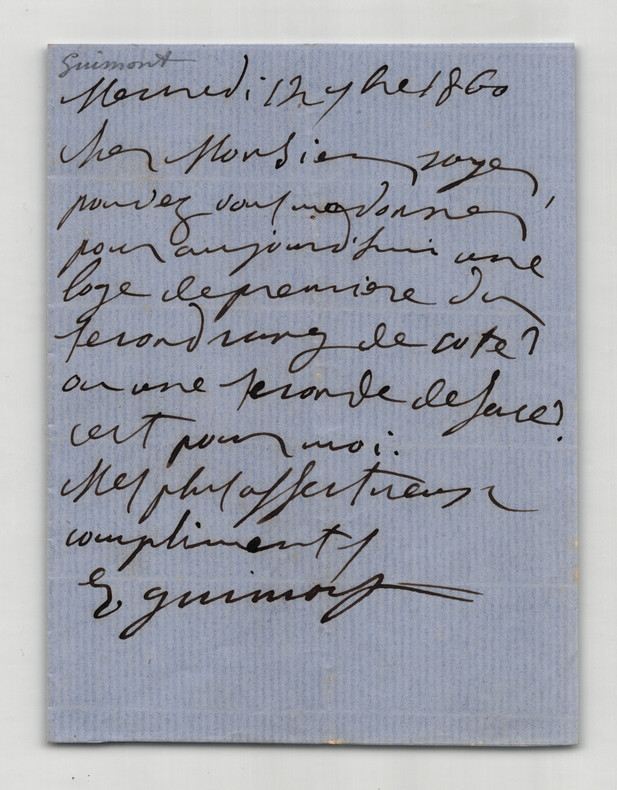 Guimont
Mercredi 12 7bre 1860
cher Monsieur royer,
pouvez vous me donner,
pour aujourd'hui une
loge de premiere du
second rang de coté?
ou une seconde de face?
cest pour moi.
Mes plus affectueux
compliments
E guimont